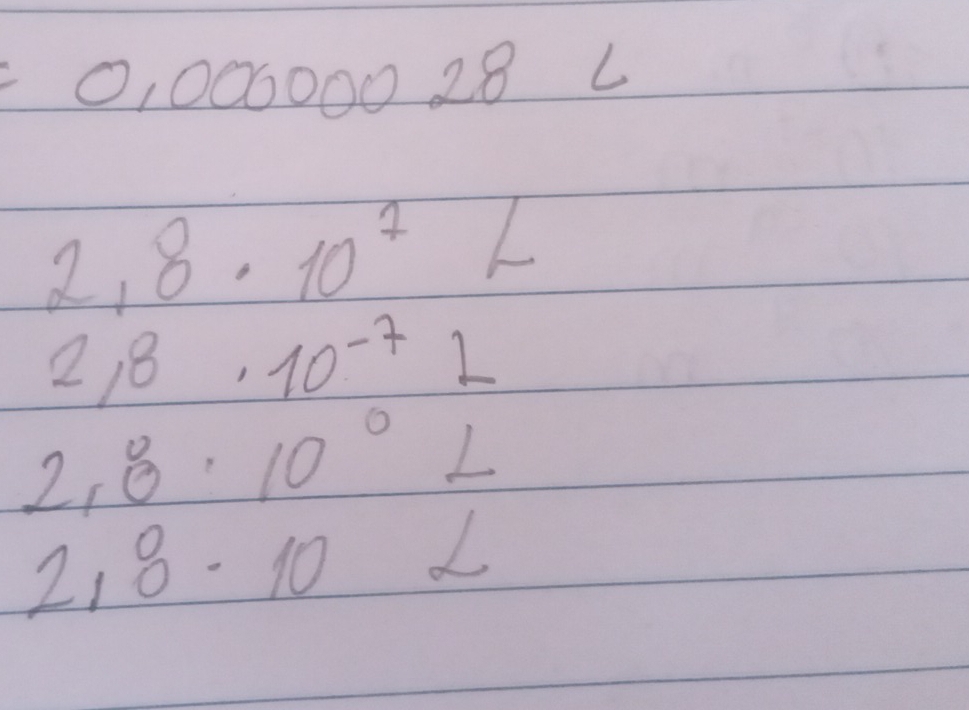 = 0,00000028 L
2,8 · 10⁷ L
2,8 · 10⁻⁷ L
2,8 · 10⁰ L
2,8 · 10 L